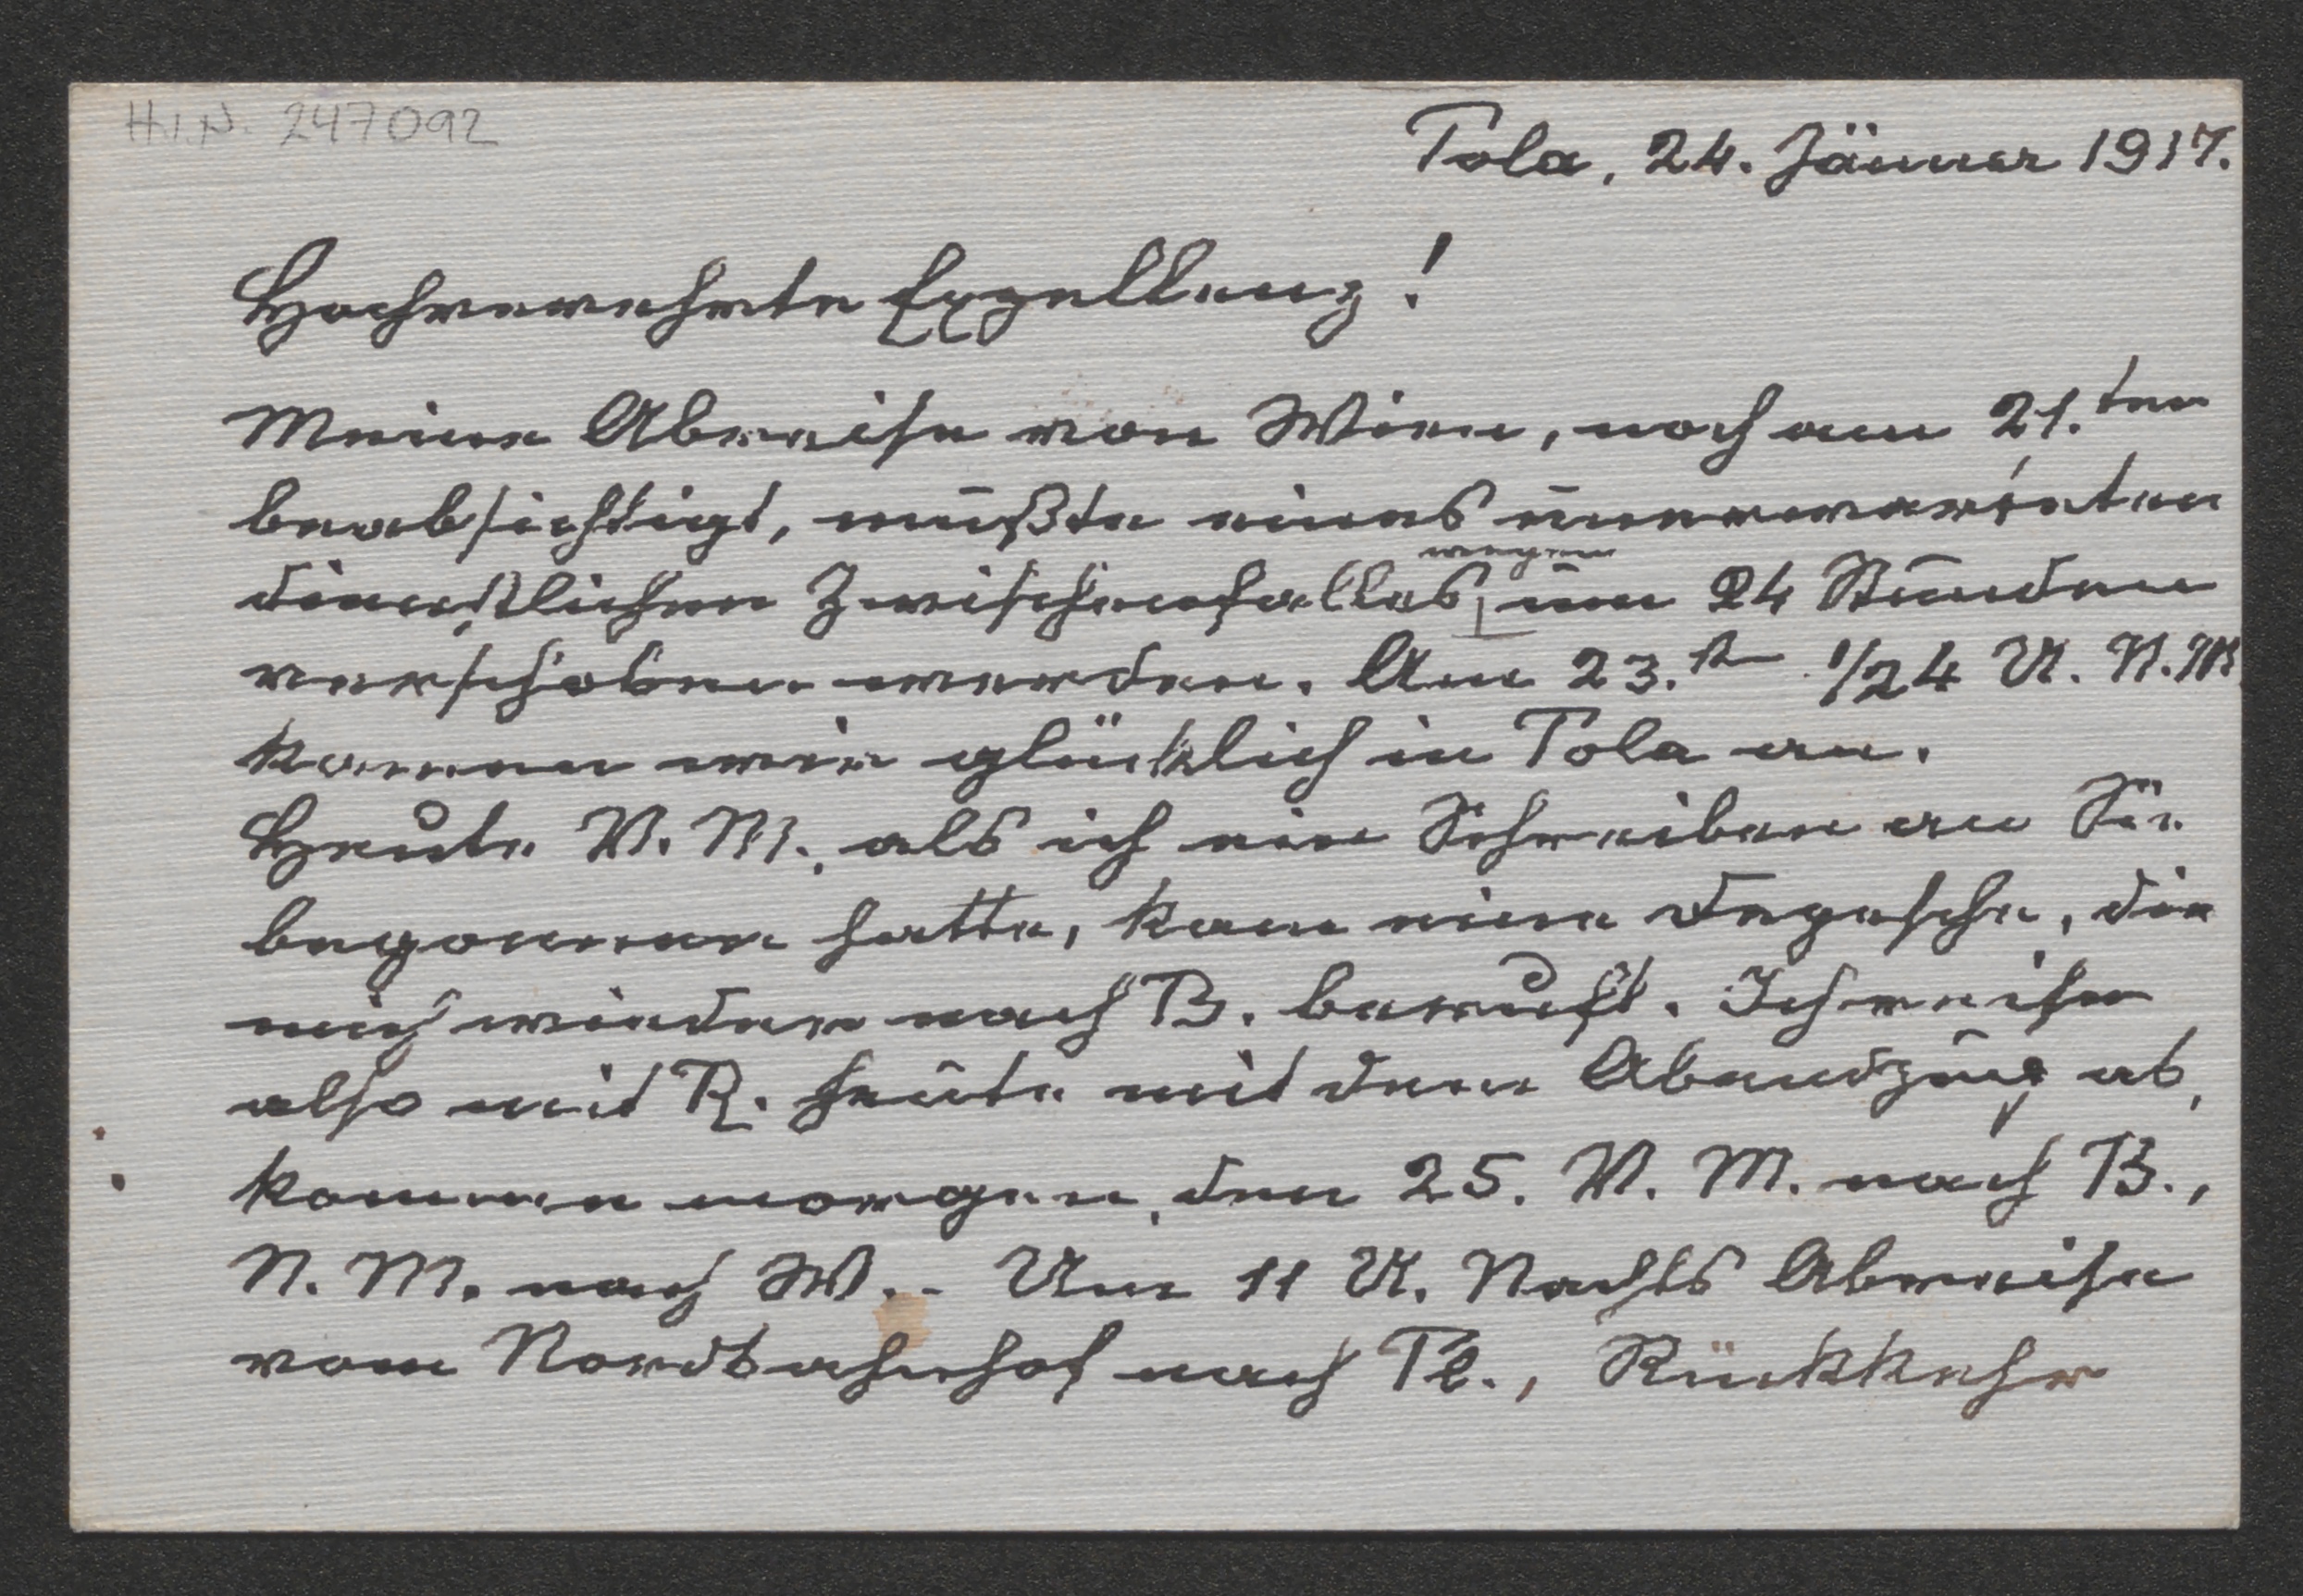 H.I.N. 247092
Pola, 24. Jänner 1917.
Hochverehrte Exzellenz!
Meine Abreise von Wien, noch am 21.ten
beabsichtigt, mußte eines unerwarteten
wegen
dienstlichen Zwischenfalles um 24 Stunden
verschoben werden. Am 23.ten 1/24 U. N.M.
kamen wir glücklich in Pola an.
Heute V. M., als ich ein Schreiben an Sie
begonnen hatte, kam eine Depesche, die
mich wieder nach B. beruft. Ich reise
also mit R. heute mit dem Abendzug ab,
kommen morgen, den 25. V. M. nach B.,
N. M. nach W. - Um 11 U. Nachts Abreise
vom Nordbahnhof nach Pl., Rückkehr